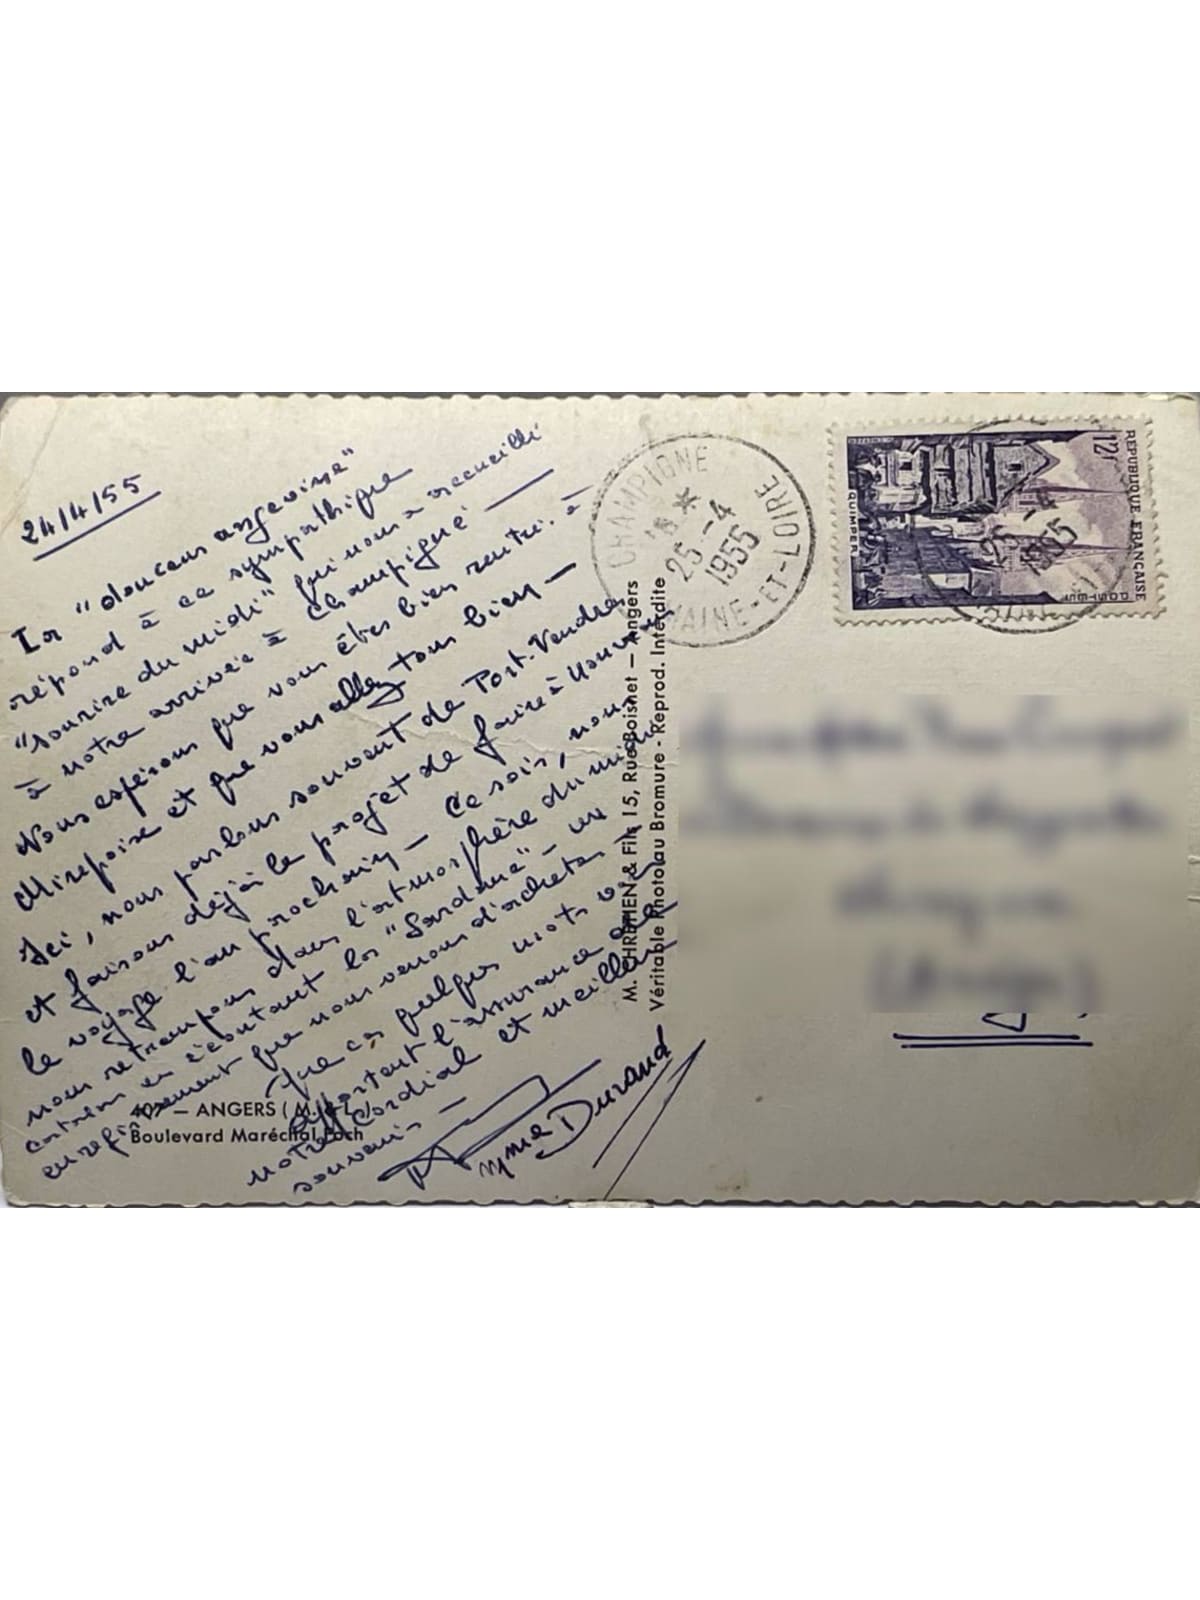 24/4/55
La "douceur angevine"
répond à ce sympathique
"sourire du midi" qui nous a accueilli
à notre arrivée à Champigné —
Nous espérons que vous êtes bien rentré à
Mirepoix et que vous allez tous bien —
Ici, nous parlons souvent de Port-Vendres
et faisons déjà le projet de faire à nouveau
le voyage l'an prochain — Ce soir, nous
nous retrempons dans l'atmosphère du mieux
en écoutant la "Sardane" — un
enregistrement que nous venons d'acheter —
Que ces quelques mots vous
apportent l'assurance de
notre cordial et meilleur
souvenir —
Mme Durand
407 — ANGERS (M.-&-L.)
Boulevard Maréchal Foch
M. CHRETIEN & Fils 15, Rue Boisnet — Angers
Véritable Photo au Bromure - Reprod. Interdite
CHAMPIGNE
25 -4
1955
MAINE-ET-LOIRE
12f
RÉPUBLIQUE FRANÇAISE
POSTES
QUIMPER
25 -4
1955